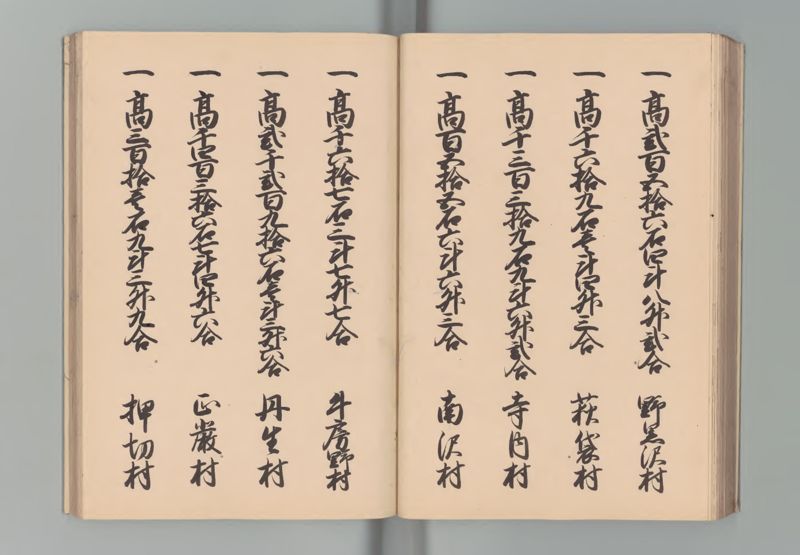 一 高弐百五拾六石四斗八升弐合 野黒沢村
一 高千六拾九石壱斗四升三合 萩袋村
一 高千三百三拾九石九斗六升弐合 寺内村
一 高百五拾五石六斗六升三合 南沢村
一 高千六拾七石三斗七升七合 牛房野村
一 高弐千弐百九拾六石壱斗三升六合 丹生村
一 高千四百三拾六石七斗四升六合 正厳村
一 高三百拾壱石九斗三升九合 押切村